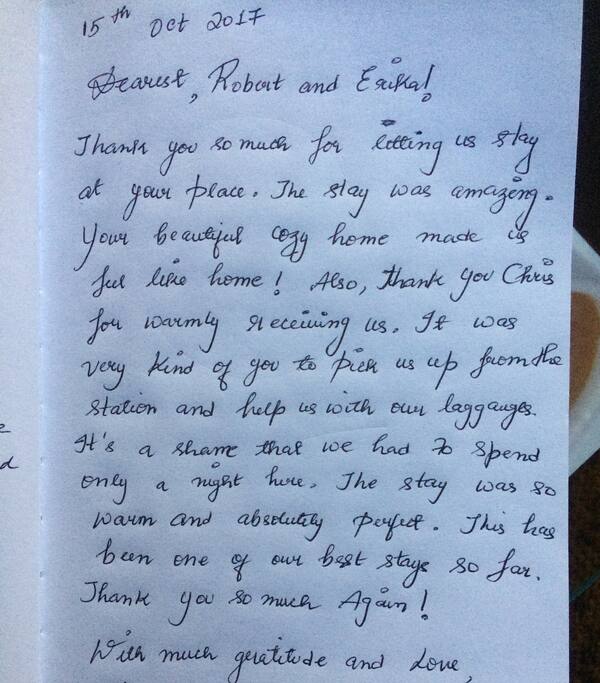 15th Oct 2017
Dearest, Robert and Erika!
Thank you so much for letting us stay
at your place. The stay was amazing.
Your beautiful cozy home made us
feel like home! Also, thank you Chris
for warmly receiving us. It was
very kind of you to pick us up from the
station and help us with our laggauges.
It's a shame that we had to spend
only a night here. The stay was so
warm and absolutely perfect. This has
been one of our best stays so far.
Thank you so much Again!
With much gratitude and Love,
e
d